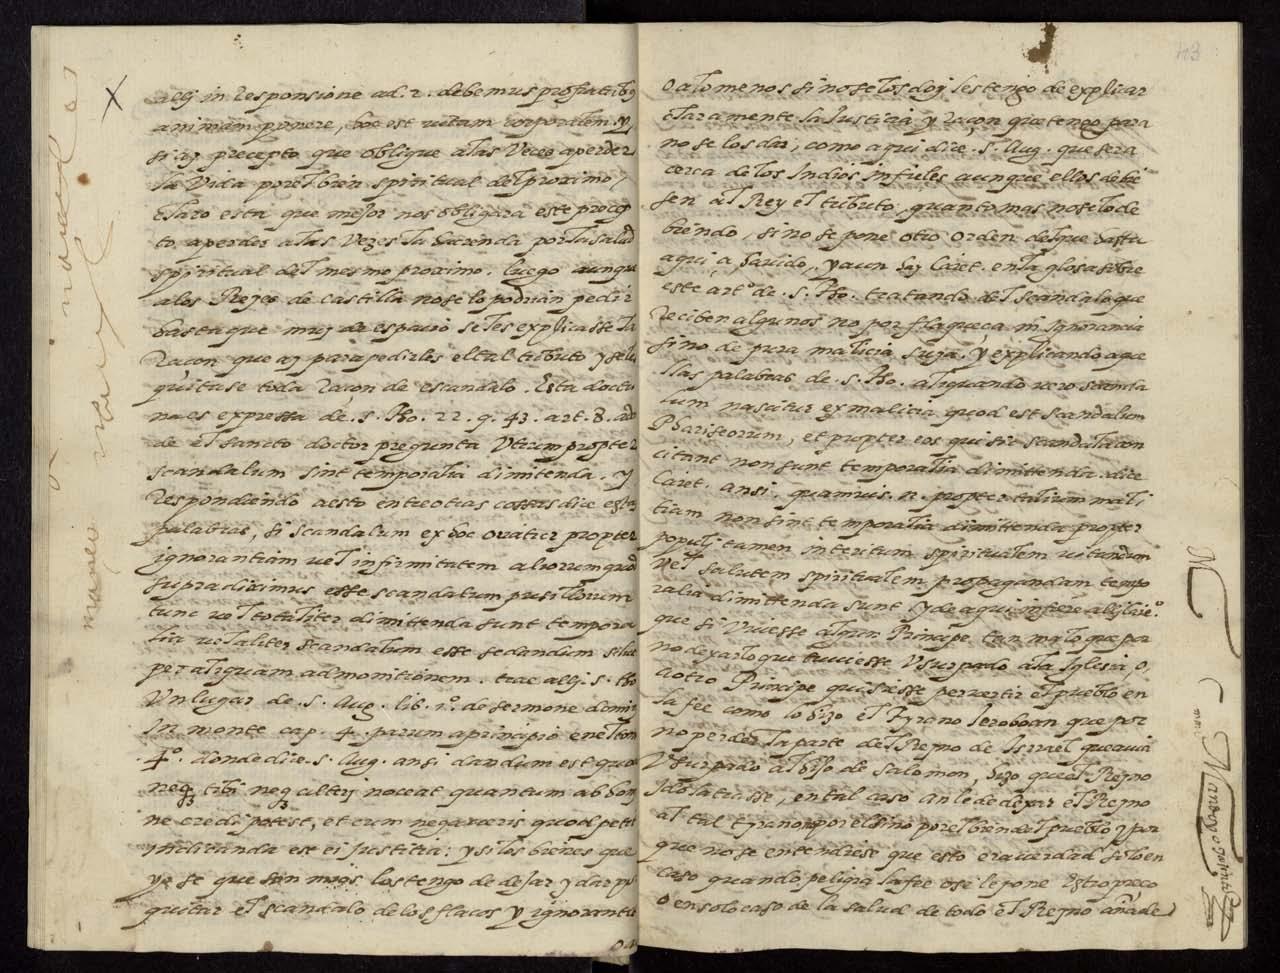 alli in responsione ad. 2. debemus pro fratribus
animam ponere, hoc est vitam corporalem. y
si ay precepto que oblique a las veces a perder
la vida por el bien spiritual del proximo,
claro esta que mejor nos obligara este precep
to a perder a las vezes la hazienda por la salud
spiritual del mesmo proximo. luego aunque
a los Reyes de castilla no se lo podrian pedir
hasta que muy de espacio se les explicasse la
Racon que ay para pedirles el tal tributo y se les
quitase toda racon de escandalo. Esta doctri
na es expressa de .s. tho. 22. q. 43. art. 8. adon
de el sancto doctor pregunta Utrum propter
scandalum sint temporalia dimitenda. y
Respondiendo a esto entre otras cossas dice estas
palabras, si scandalum ex hoc oriatur propter
ignorantiam vel infirmitatem aliorum quod
supra diximus esse scandalum pusillorum
tunc vel totaliter dimittenda sunt tempora
lia vel aliter scandalum esse sedandum scilicet
per aliquam admonitionem. trae alli .s. tho
Un lugar de .s. Aug. lib. 1º. de sermone domini
In monte cap. 4. parum a principio en el tom
4º. donde dice .s. Aug. ansi dandum est quod
neq tibi neq alterij noceat quantum ab homi
ne credi potest, et cum negaveris quod petit
indicanda est ei justitia: y si los bienes que
yo se que son mios los tengo de dejar y dar por
quitar el scandalo de los flacos y ignorantes
43
O a lo menos si no se los doy les tengo de explicar
claramente la Justicia y racon que tengo para
no se los dar, como aqui dice .s. Aug. que sera
cerca de los Indios infieles aunque ellos debie
sen al Rey el tributo, quanto mas no se lo de
biendo, si no se pone otro orden del que hasta
aqui a havido, y aun hay Caiet. en la glosa sobre
este artº de .s. tho. tratando del scandalo que
Reciben algunos no por flaqueca ni Ignorancia
sino de pura malicia suya, y explicando aque
llas palabras de .s. tho. aliquando vero scanda
lum nascitur ex malicia quod est scandalum
Phariseorum, et propter eos qui sic scandala con
citant non sunt temporalia dimittenda. dice
Caiet. ansi. quamvis .n. propter talium mali
tiam non sint temporalia dimittenda propter
populi tamen interitum spiritualem vitandum
vel salutem spiritualem propagandam tempo
ralia dimittenda sunt. y de aqui infiere alli
que si Uviesse algun Principe tan malo que por
no dexar lo que tuviesse Usurpado a la Iglesia, o,
a otro Principe quisiesse pervertir el pueblo en
la fee como lo hizo el Tyrano Ieroboan que por
no perder la parte del Reyno de Israel que avia
Usurpado al hijo de Salomon, hizo que el Reyno
Idolatrasse, en tal caso an le de dexar el Reyno
al tal tyrano no por el sino por el bien del pueblo y por
que no se entendiese que esto era verdad solo en
caso quando peligra la fee o se le pone estropieço
o en solo caso de la salud de todo el Reyno añade